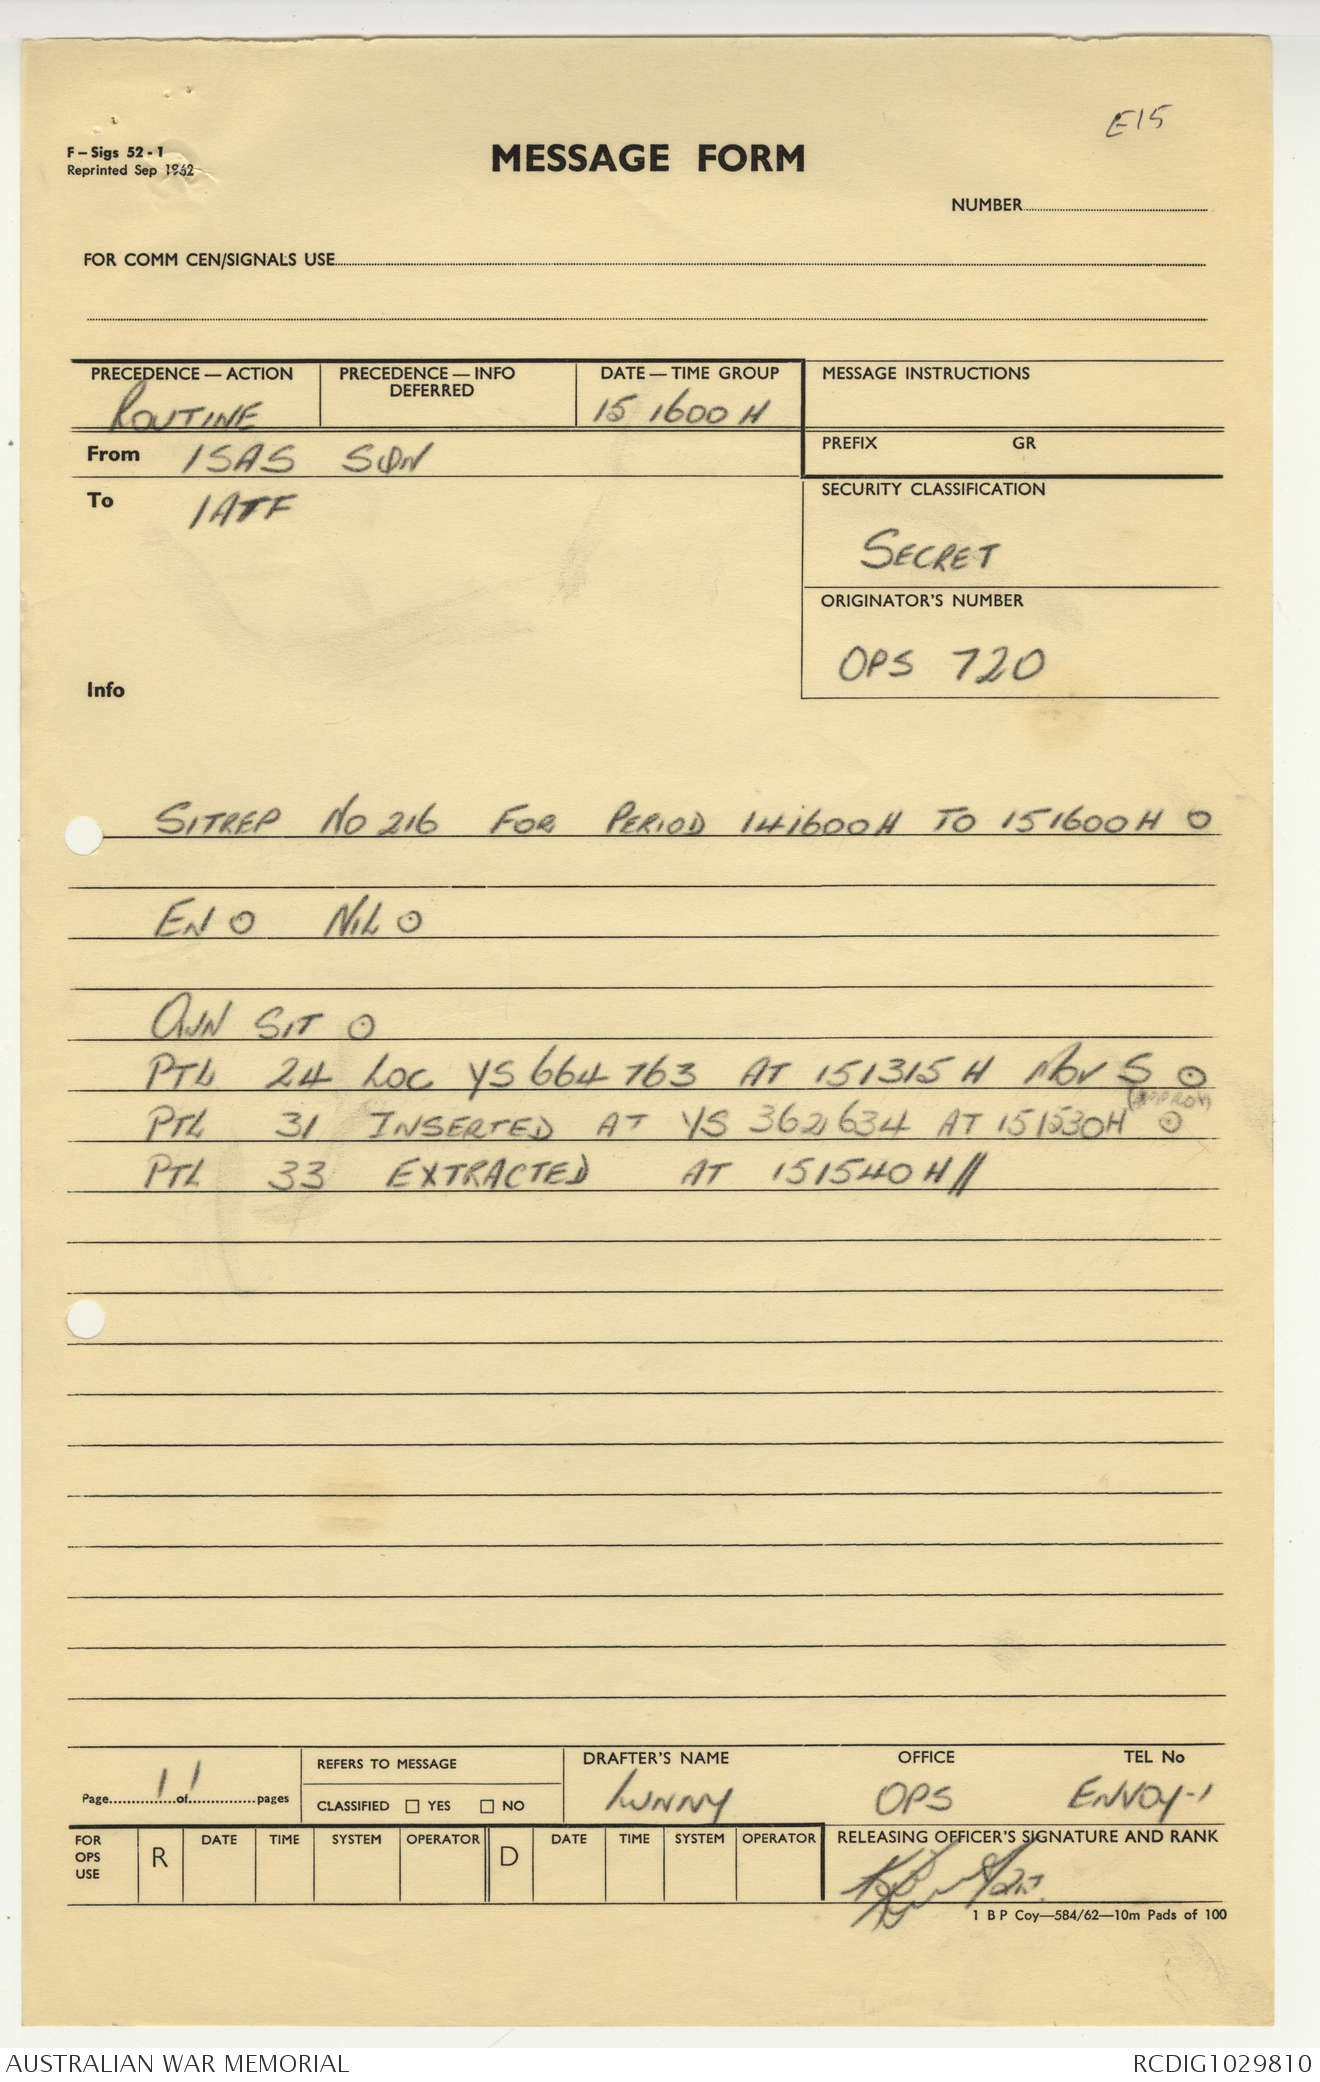 E15
F – Sigs 52 - 1
Reprinted Sep 1962
MESSAGE FORM
NUMBER
FOR COMM CEN/SIGNALS USE
PRECEDENCE — ACTION
ROUTINE
PRECEDENCE — INFO
DEFERRED
DATE — TIME GROUP
151600H
MESSAGE INSTRUCTIONS
PREFIX GR
From 1SAS SQN
To 1ATF
SECURITY CLASSIFICATION
SECRET
ORIGINATOR'S NUMBER
OPS 720
Info
SITREP No 216 FOR PERIOD 141600H TO 151600H ⊙
EN ⊙ NIL ⊙
OWN SIT ⊙
PTL 24 LOC YS 664763 AT 151315H MOV S ⊙
(APPROX)
PTL 31 INSERTED AT YS 362634 AT 151530H ⊙
PTL 33 EXTRACTED AT 151540H//
Page 1 of 1 pages
REFERS TO MESSAGE
CLASSIFIED □ YES □ NO
DRAFTER'S NAME
LUNNY
OFFICE
OPS
TEL No
ENVOY-1
FOR OPS USE
R DATE TIME SYSTEM OPERATOR D DATE TIME SYSTEM OPERATOR
RELEASING OFFICER'S SIGNATURE AND RANK
1 B P Coy—584/62—10m Pads of 100
AUSTRALIAN WAR MEMORIAL
RCDIG1029810